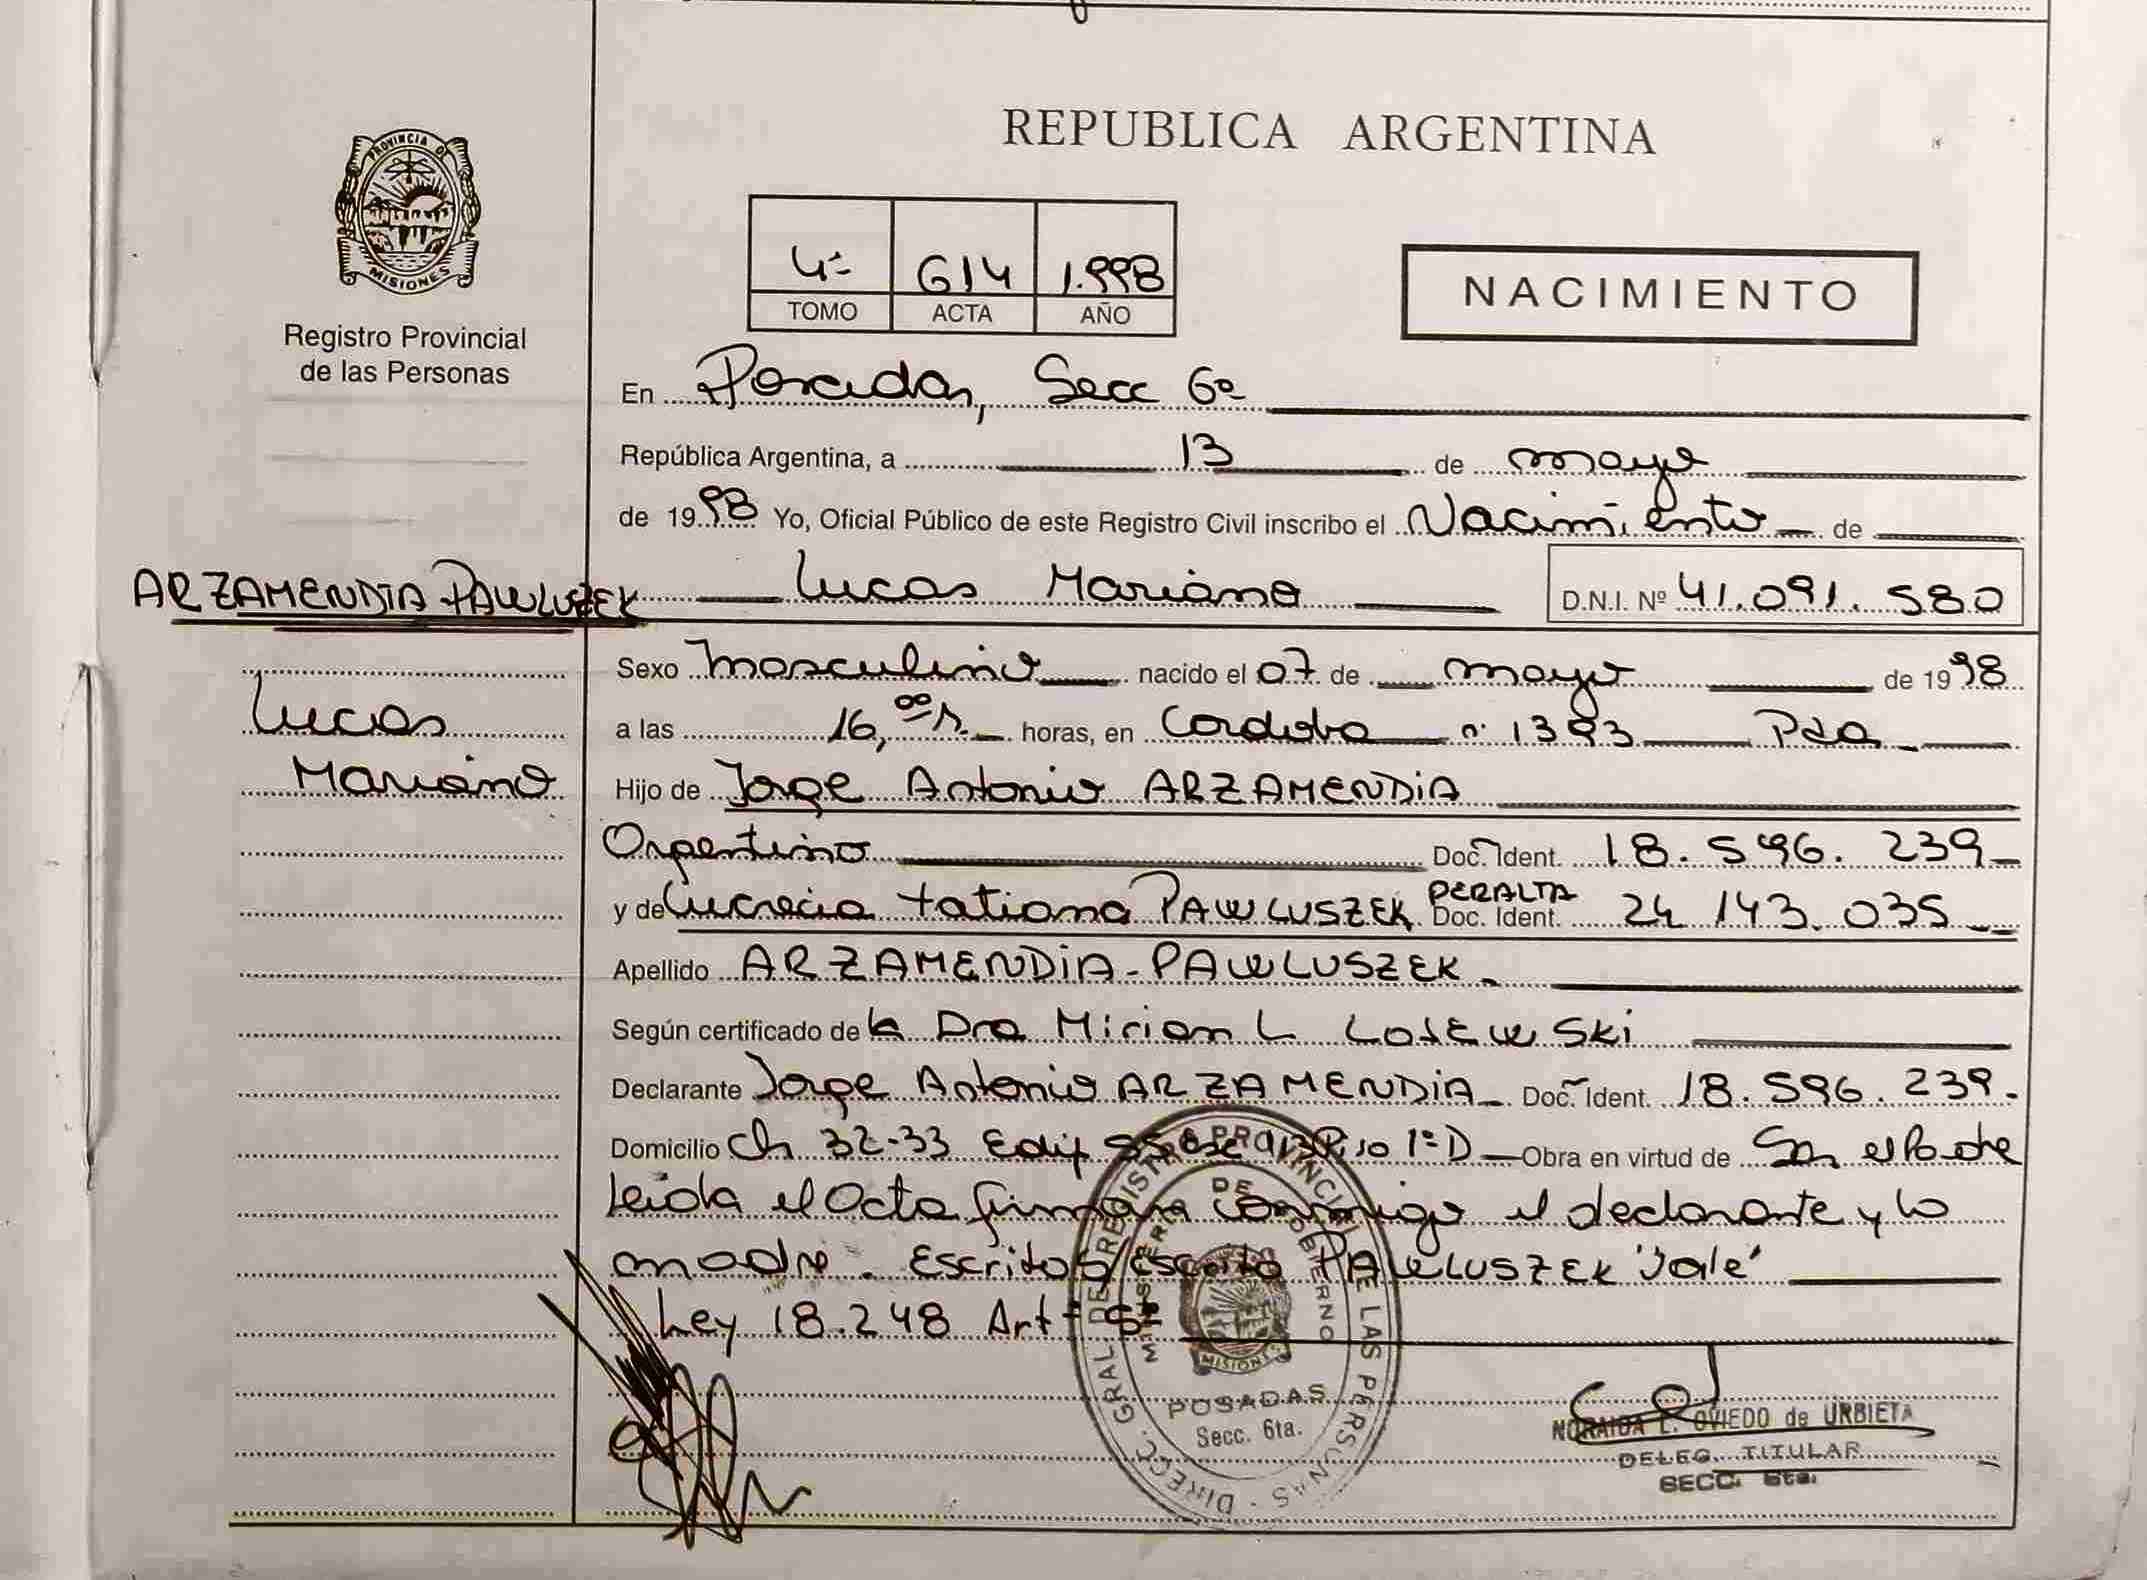 PROVINCIA DE
MISIONES
Registro Provincial
de las Personas
REPUBLICA ARGENTINA
4º 614 1.998
TOMO ACTA AÑO
NACIMIENTO
En Posadas, Secc 6ª
República Argentina, a 13 de mayo
de 1998 Yo, Oficial Público de este Registro Civil inscribo el Nacimiento de
ARZAMENDIA PAWLUSZEK Lucas Mariano D.N.I. Nº 41.091.580
Sexo Masculino nacido el 07 de mayo de 1998
Lucas
a las 16,00 hs. horas, en Cordoba nº 1393 Pdas
Mariano
Hijo de Jorge Antonio ARZAMENDIA
Argentino Doc. Ident. 18.596.239
y de Lucrecia Tatiana PAWLUSZEK PERALTA Doc. Ident. 24 143.035
Apellido ARZAMENDIA-PAWLUSZEK
Según certificado de la Dra Mirian L
Declarante Jorge Antonio ARZAMENDIA Doc. Ident. 18.596.239.
Domicilio Ch 32-33 Edif Piso 1º D Obra en virtud de Ser el Padre
Leida el Acta firman conmigo el declarante y la
madre. Escritos/escrito PAWLUSZEK "Vale"
Ley 18.248 Art
DIRECC. GRAL DE REGISTRO PROVINCIAL DE LAS PERSONAS
MINISTERIO DE GOBIERNO
MISIONES
POSADAS
Secc. 6ta.
NORAIDA E. OVIEDO de URBIETA
DELEG. TITULAR
SECC. 6ta.